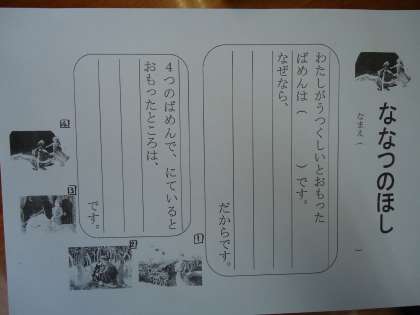 ななつのほし
なまえ（　　　）
わたしがうつくしいとおもった
ばめんは（　　　）です。
なぜなら、
だからです。
４つのばめんで、にていると
おもったところは、
です。
1
2
3
4